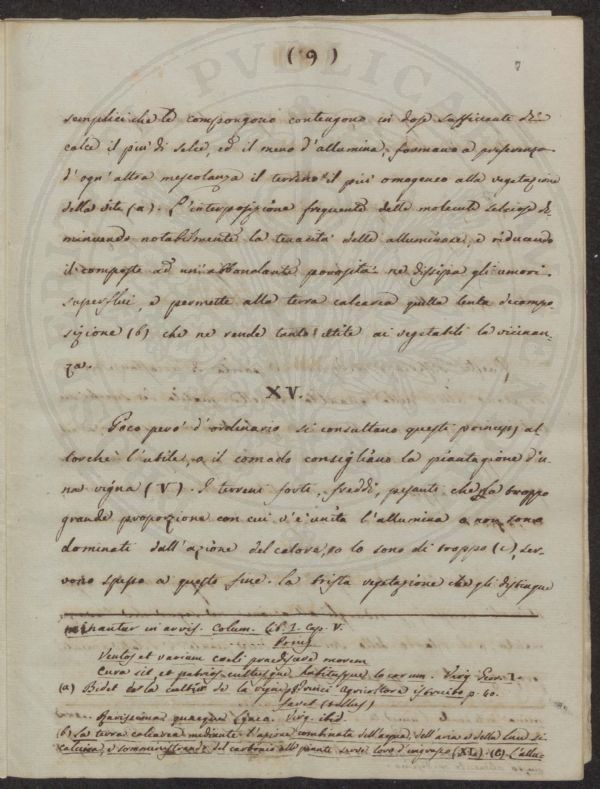 ( 9 )
7
semplici che le compongono contengono in dose sufficiente di
calce il più di selce, ed il meno d'allumina, formano a preferenza
d'ogn'altra mescolanza il terreno il più omogeneo alla vegetazione
della vite (a). L'interposizione frequente delle molecule selciose di-
minuendo notabilmente la tenacità delle alluminose, e riducendo
il composto ad un'abbondante porosità ne dissipa gli umori
superflui, e permette alla terra calcarea quella lenta decompo-
sizione (b) che ne rende tanto utile ai vegetabili la vicinan-
za.
XV.
Poco però d'ordinario si consultano questi principj al-
lorchè l'utile, o il comodo consigliano la piantagione d'u-
na vigna (V). I terreni forti, freddi, pesanti che la troppo
grande proporzione con cui v'è unita l'allumina o non sono
dominati dall'azione del calore, o lo sono di troppo (c), ser-
vono spesso a questo fine. La trista vegetazione che gli distingue
in arvis. Colum. Lib. I. Cap. V.
Prius
Ventos et varium coeli praediscere morem
Cura sit et patrios cultusque habitusque locorum. Virg. Geor. I.
(a) Bidet la cultur de la vigne. p. 40.
Rarissima quaeque Lyaeo. Virg. ibid.
(b) La terra calcarea mediante l'azione combinata dell'acqua, dell'aria e della luce si
e somministrando del carbonio alle piante serve loro d'ingrasso (XI.) (c) L'allu-